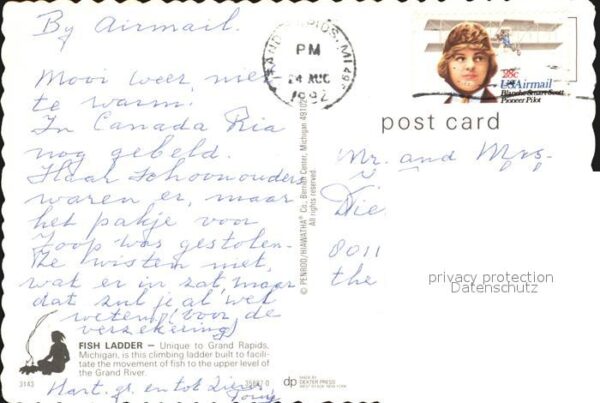 By Airmail.
GRAND RAPIDS, MI 495
PM
14 AUG
1982
28c
USAirmail
Blanche Stuart Scott
Pioneer Pilot
post card
Mooi weer, niet
te warm.
In Canada Ria
nog gebeld.
Haar schoonouders
waren er, maar
het pakje voor
Joop was gestolen.
Ze wisten niet,
wat er in zat, maar
dat zul je al wel
weten (voor de
verzekering)
Mr. and Mrs.
Die
8011
the
privacy protection
Datenschutz
© PENROD/HIAWATHA® Co., Berrien Center, Michigan 49102
All rights reserved
FISH LADDER — Unique to Grand Rapids,
Michigan, is this climbing ladder built to facili-
tate the movement of fish to the upper level of
the Grand River.
3143
dp
MADE BY
DEXTER PRESS
WEST NYACK, NEW YORK
Hart. gr. en tot ziens